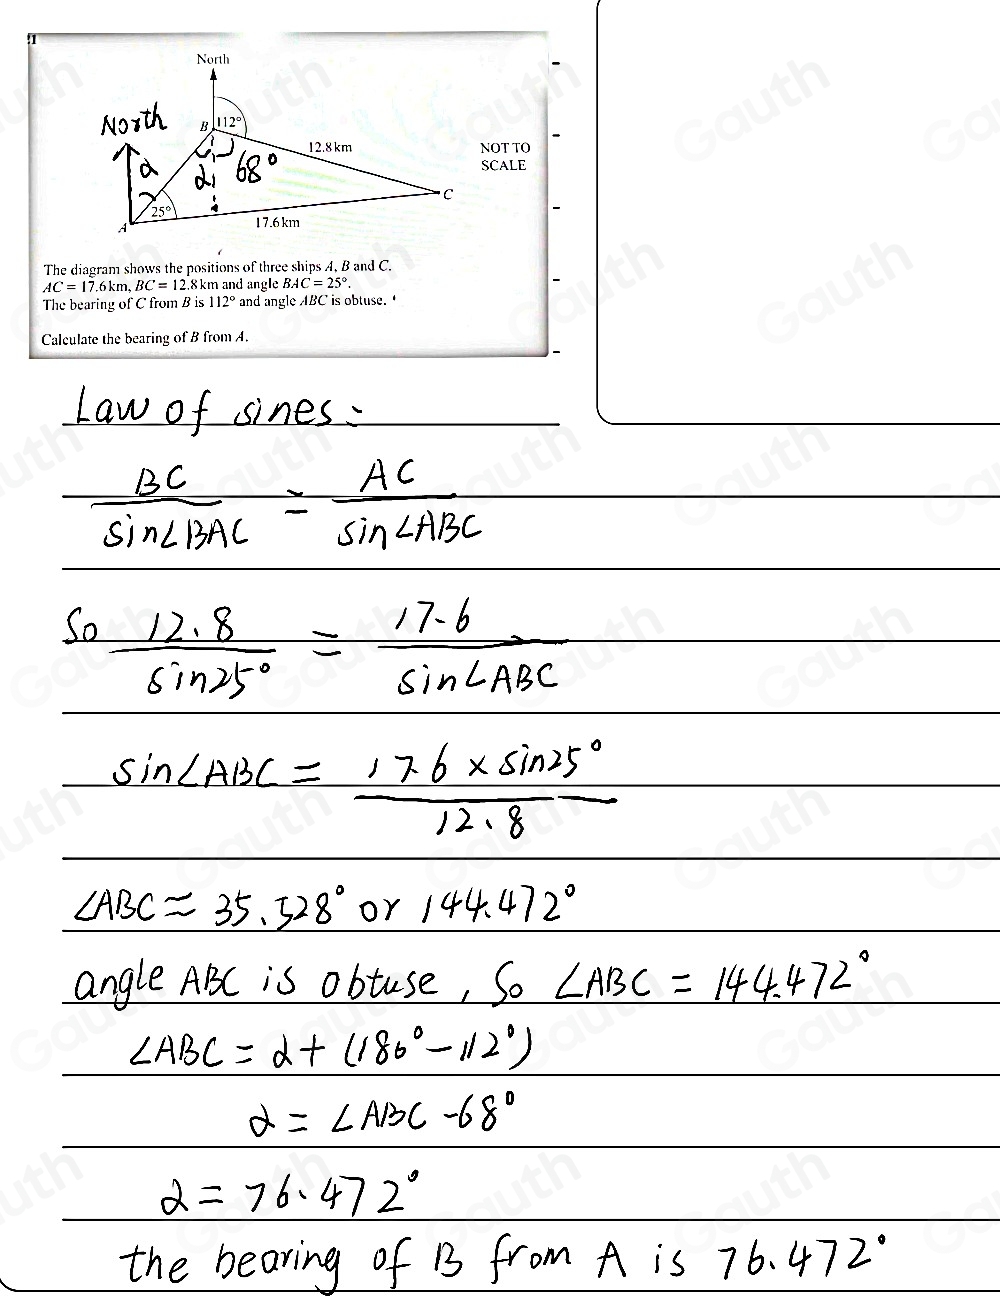 11
North
North
B 112°
12.8 km
NOT TO
SCALE
α
α 68°
C
25°
A
17.6 km
The diagram shows the positions of three ships A, B and C.
AC = 17.6 km, BC = 12.8 km and angle BAC = 25°.
The bearing of C from B is 112° and angle ABC is obtuse.
Calculate the bearing of B from A.
Law of sines:
BC / sin∠BAC = AC / sin∠ABC
So 12.8 / sin25° = 17.6 / sin∠ABC
sin∠ABC = 17.6 × sin25° / 12.8
∠ABC ≈ 35.528° or 144.472°
angle ABC is obtuse, So ∠ABC = 144.472°
∠ABC = α + (180° - 112°)
α = ∠ABC - 68°
α = 76.472°
the bearing of B from A is 76.472°
Gauth